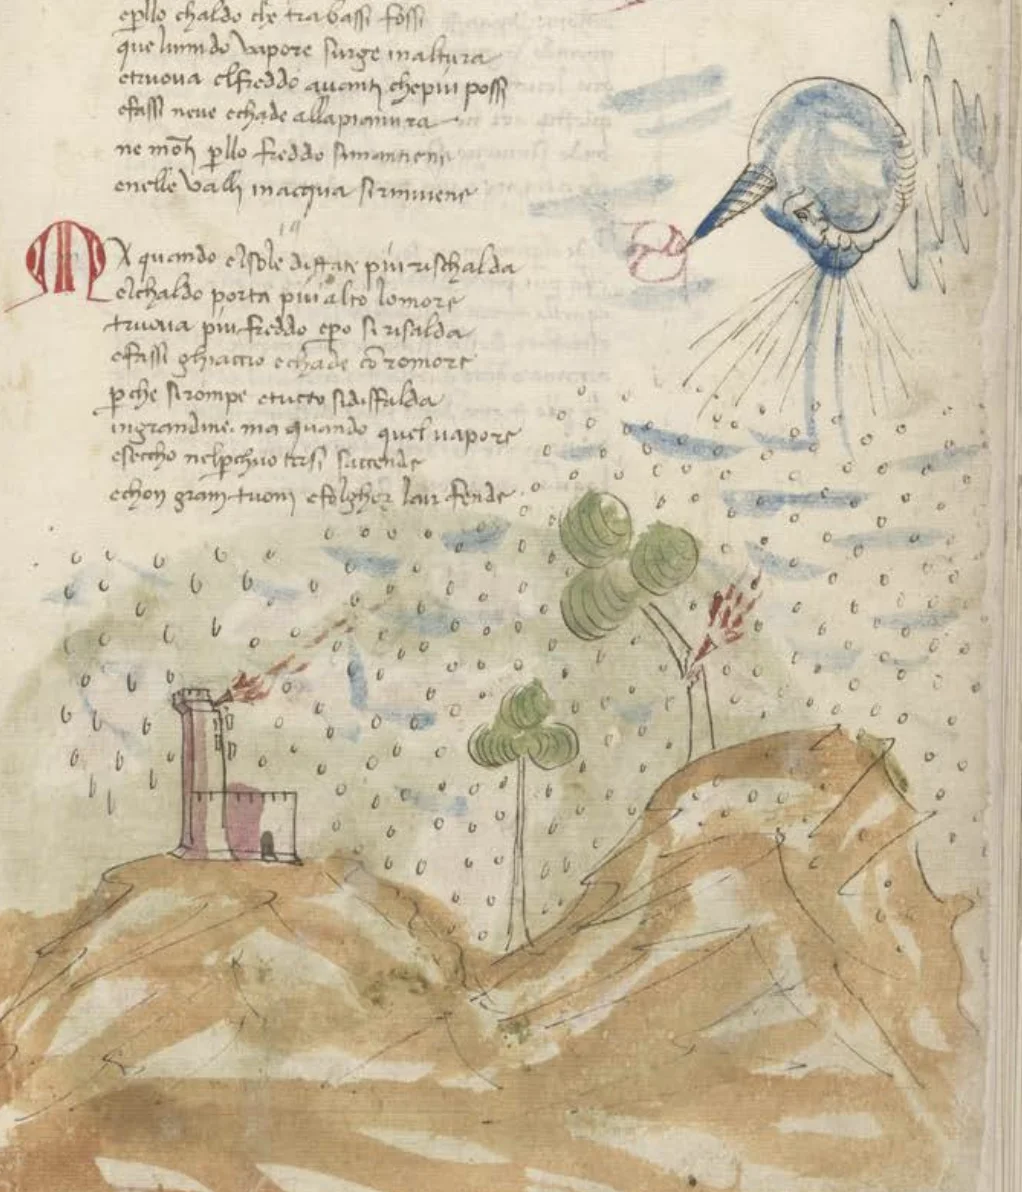 epllo chaldo che trabassi fossi
que lumido vapore surge inaltura
etruova elfreddo quanti chepiu possi
efassi neve echade allapianura
ne moti pllo freddo simantieni
enelle valli inacqua sirinviene
19
MA quando elsole di state piu rischalda
elchaldo porta piu alto lomore
truova piu freddo epo si risalda
efassi ghiaccio echade co romore
pche sirompe etucto sidisfalda
ingrandine. ma quando quel vapore
esecho nelpchuo tersi saccende
echon gran tuoni efolghor lair fende